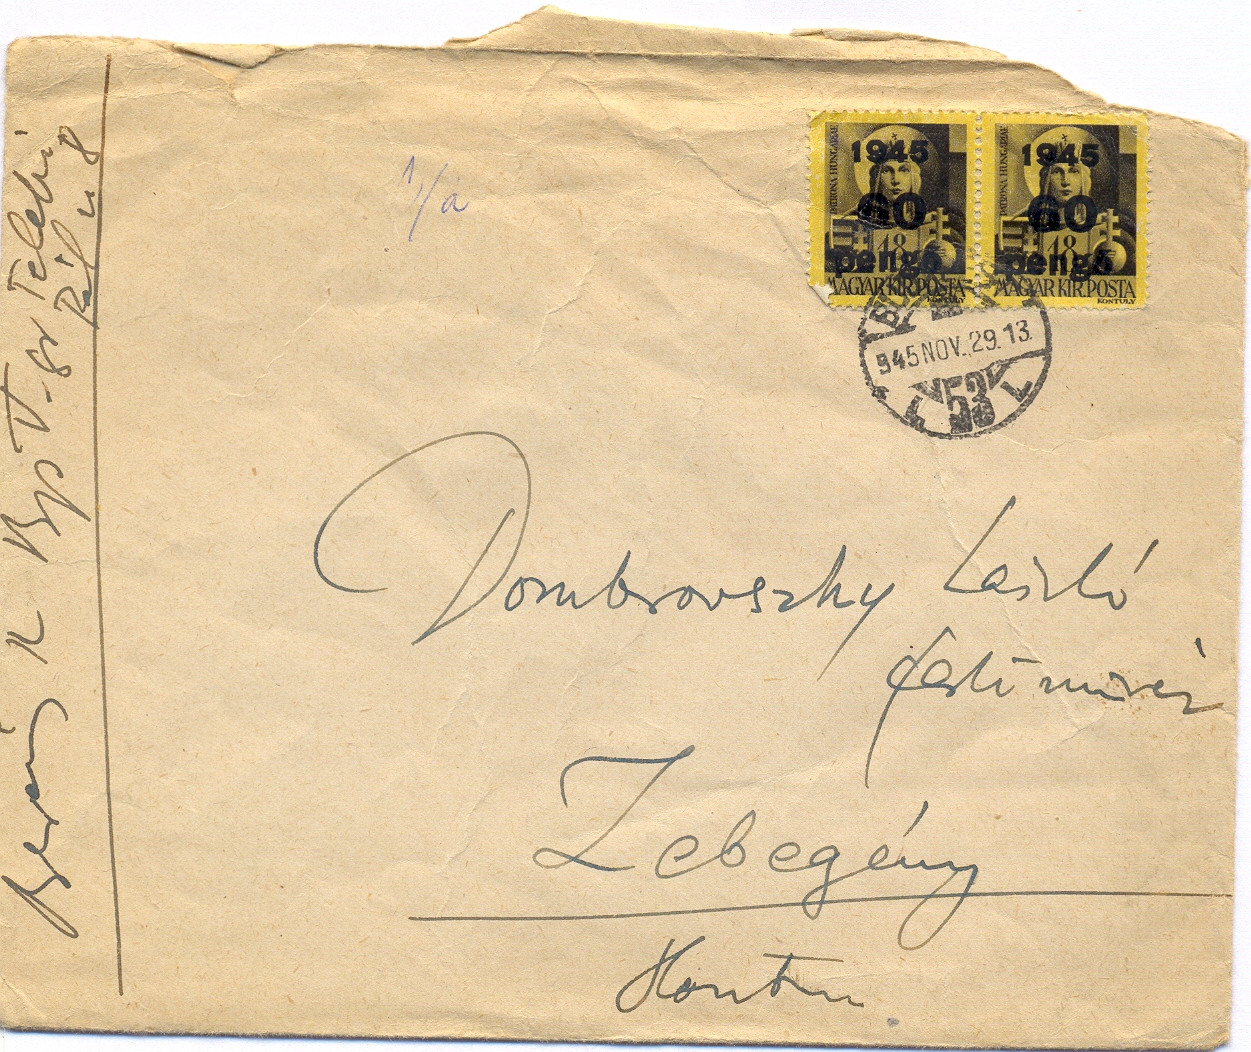 1/a
1945 1945
60 60
18 18
pengő pengő
PATRONA HUNGARIAE PATRONA HUNGARIAE
MAGYAR KIR. POSTA MAGYAR KIR. POSTA
KONTULY KONTULY
945 NOV. 29. 13.
53
Dombrovszky László
festőművész
Zebegény
Hont m
Bp V. gr Teleki
Pál u 8